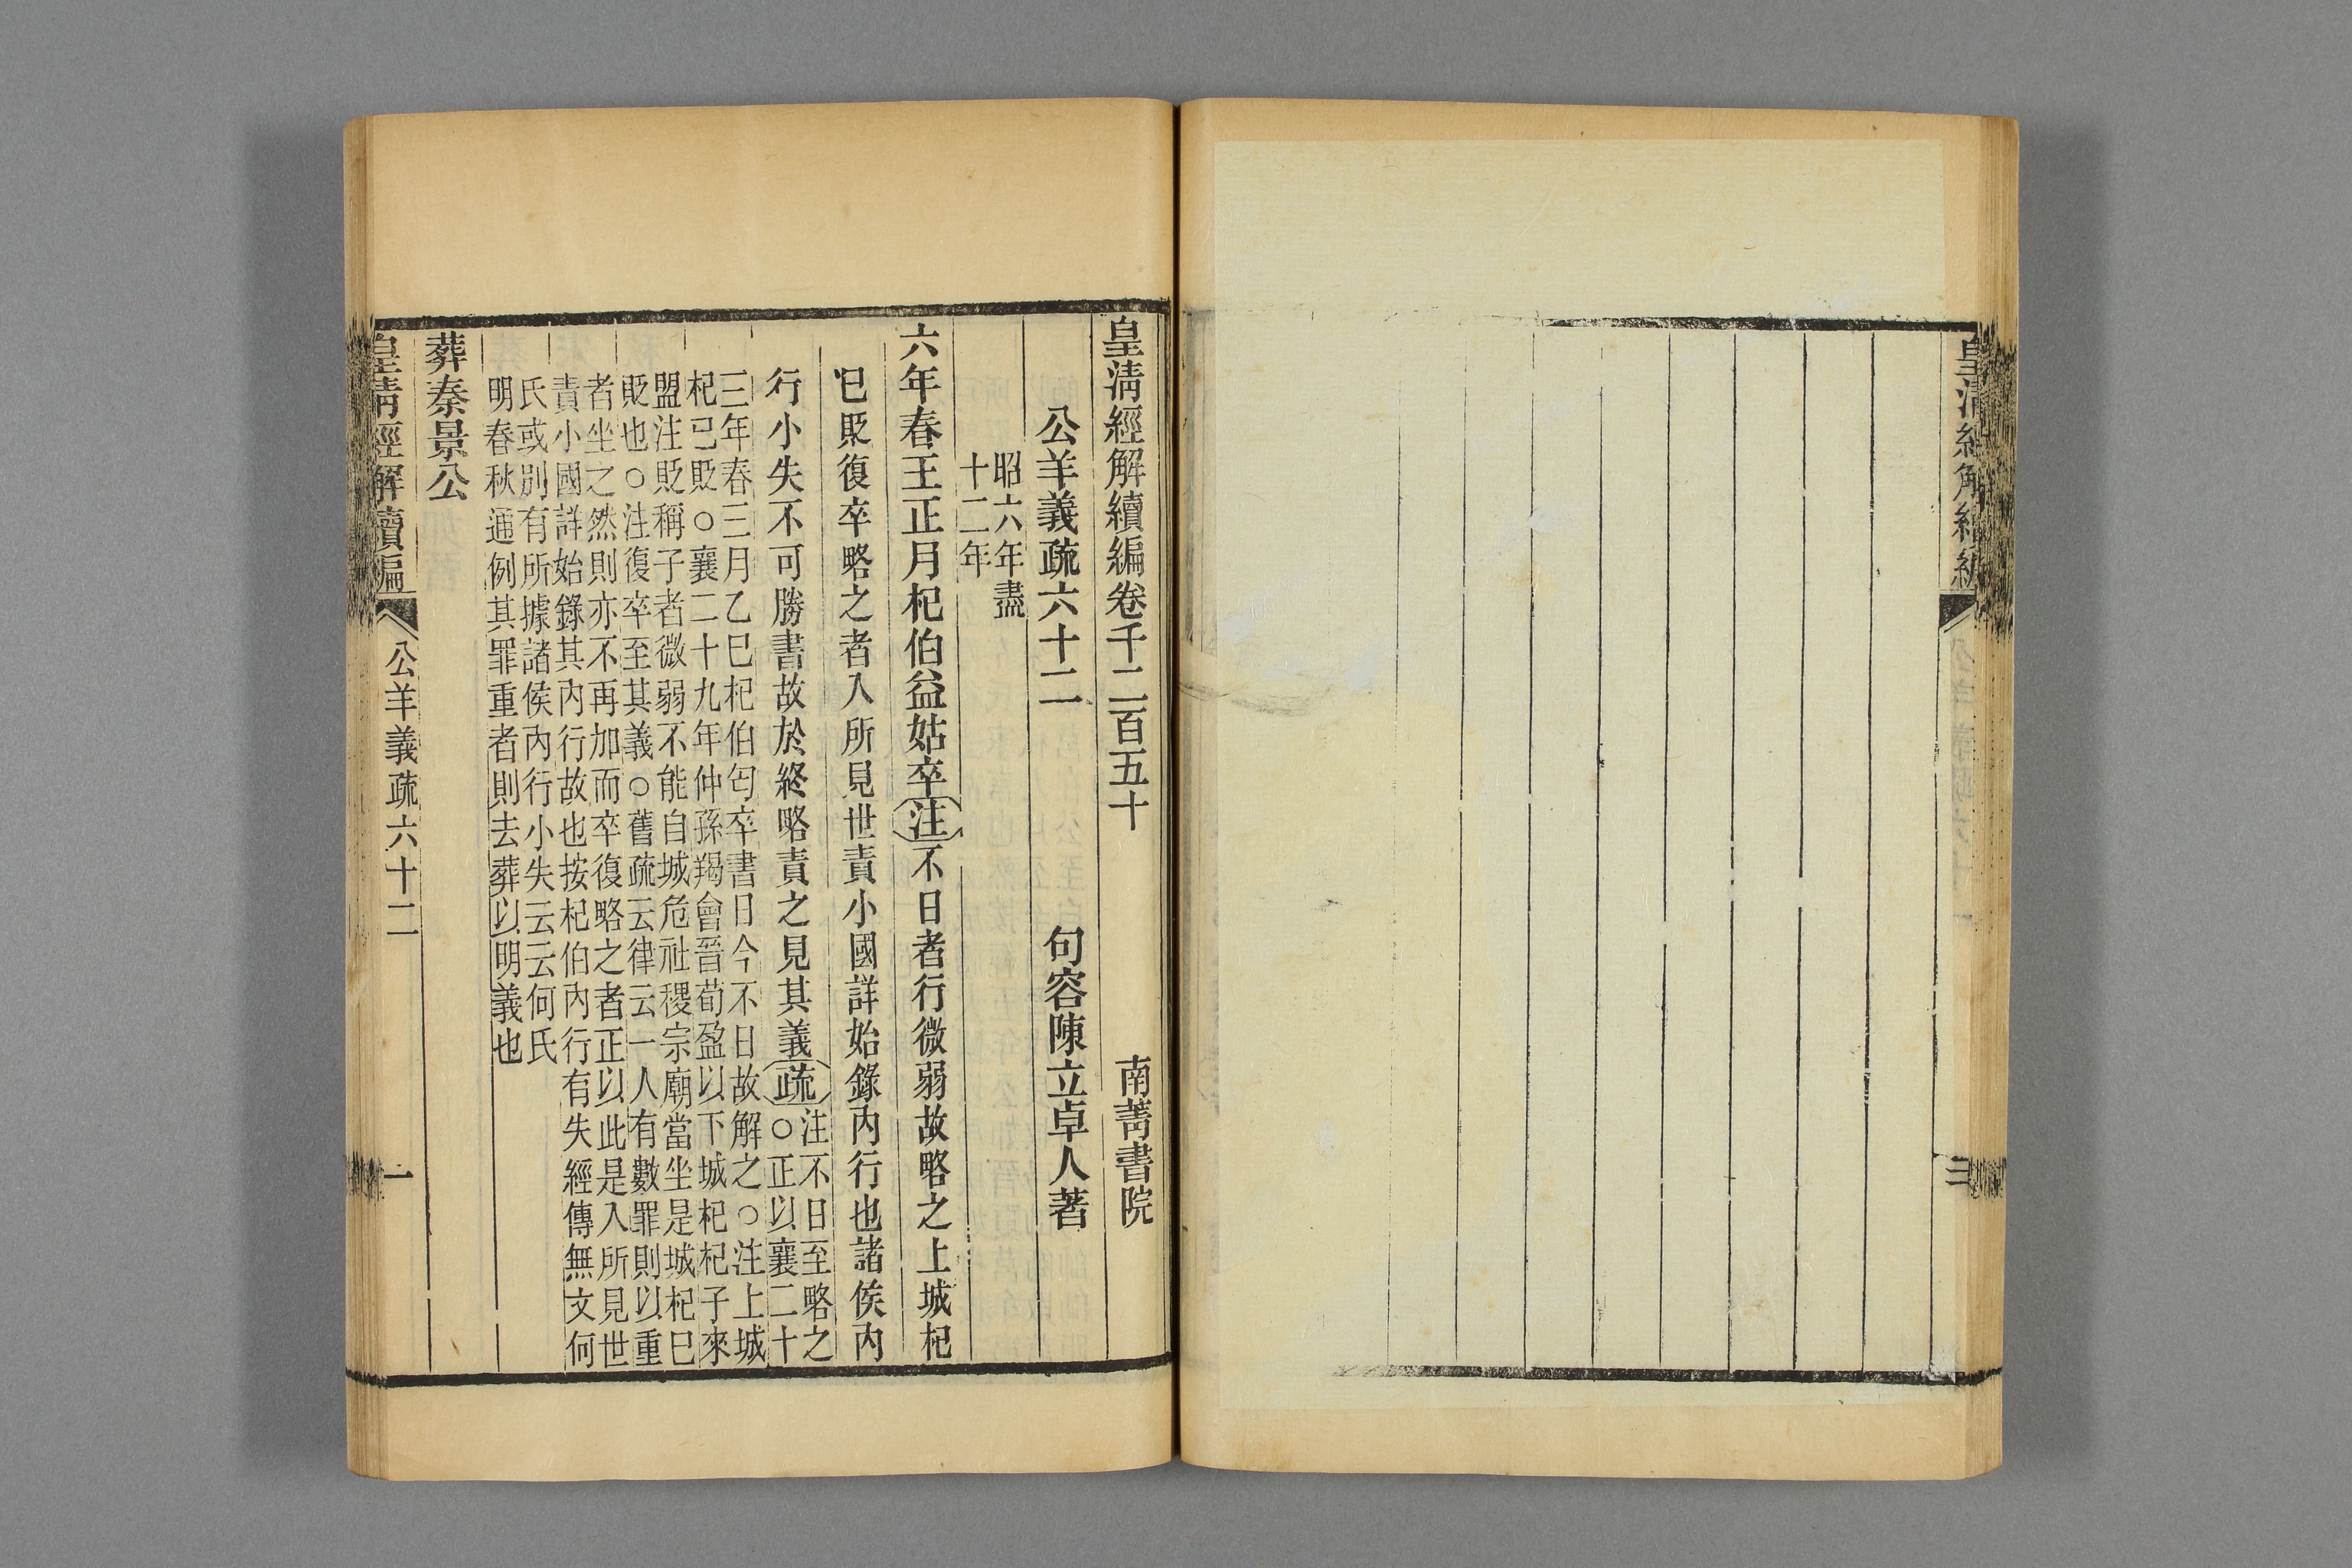 皇清經解續編
三
皇清經解續編卷千二百五十　南菁書院
公羊義疏六十二　句容陳立卓人著
昭六年盡
十二年
六年春王正月杞伯益姑卒注不日者行微弱故略之上城杞
已貶復卒略之者入所見世責小國詳始錄內行也諸侯內
行小失不可勝書故於終略責之見其義疏注不日至略之
○正以襄二十
三年春三月乙巳杞伯匄卒書日今不日故解之○注上城
杞已貶○襄二十九年仲孫羯會晉荀盈以下城杞杞子來
盟注貶稱子者微弱不能自城危社稷宗廟當坐是城杞已
貶也○注復卒至其義○舊疏云律云一人有數罪則以重
者坐之然則亦不再加而卒復略之者正以此是入所見世
責小國詳始錄其內行故也按杞伯內行有失經傳無文何
氏或別有所據諸侯內行小失云云何氏
明春秋通例其罪重者則去葬以明義也
葬秦景公
皇清經解續編　公羊義疏六十二　一